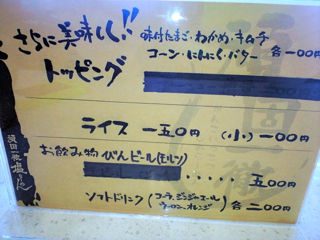 さらに美味しく!!
トッピング
味付たまご・わかめ・キムチ
コーン・にんにく・バター 各一00円
ライス 一五0円 (小)一00円
お飲み物 びんビール(モルツ)
・・・・・五00円
ソフトドリンク (コーラ、ジンジャーエール
ウーロン、オレンジ) 各二00円